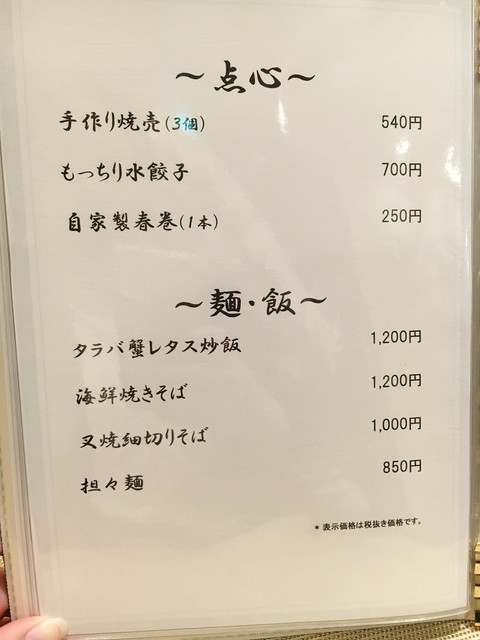 ～点心～
手作り焼売(3個) 540円
もっちり水餃子 700円
自家製春巻(1本) 250円
～麺・飯～
タラバ蟹レタス炒飯 1,200円
海鮮焼きそば 1,200円
叉焼細切りそば 1,000円
担々麺 850円
* 表示価格は税抜き価格です。